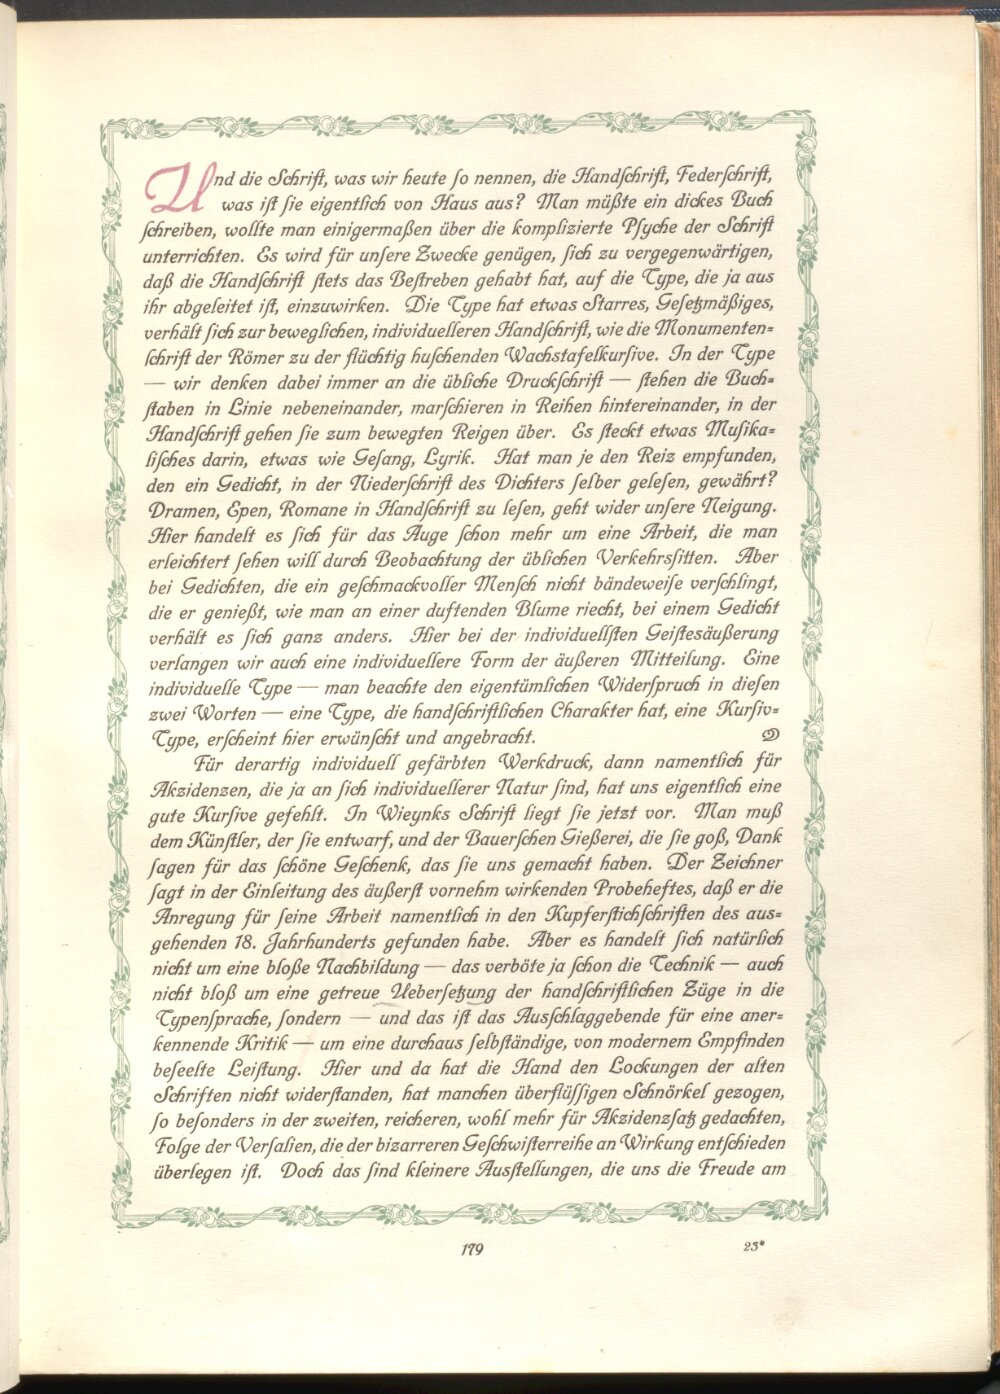 Und die Schrift, was wir heute so nennen, die Handschrift, Federschrift,
was ist sie eigentlich von Haus aus? Man müßte ein dickes Buch
schreiben, wollte man einigermaßen über die komplizierte Psyche der Schrift
unterrichten. Es wird für unsere Zwecke genügen, sich zu vergegenwärtigen,
daß die Handschrift stets das Bestreben gehabt hat, auf die Type, die ja aus
ihr abgeleitet ist, einzuwirken. Die Type hat etwas Starres, Gesetzmäßiges,
verhält sich zur beweglichen, individuelleren Handschrift, wie die Monumenten-
schrift der Römer zu der flüchtig huschenden Wachstafelkursive. In der Type
— wir denken dabei immer an die übliche Druckschrift — stehen die Buch-
staben in Linie nebeneinander, marschieren in Reihen hintereinander, in der
Handschrift gehen sie zum bewegten Reigen über. Es steckt etwas Musika-
lisches darin, etwas wie Gesang, Lyrik. Hat man je den Reiz empfunden,
den ein Gedicht, in der Niederschrift des Dichters selber gelesen, gewährt?
Dramen, Epen, Romane in Handschrift zu lesen, geht wider unsere Neigung.
Hier handelt es sich für das Auge schon mehr um eine Arbeit, die man
erleichtert sehen will durch Beobachtung der üblichen Verkehrssitten. Aber
bei Gedichten, die ein geschmackvoller Mensch nicht bändeweise verschlingt,
die er genießt, wie man an einer duftenden Blume riecht, bei einem Gedicht
verhält es sich ganz anders. Hier bei der individuellsten Geistesäußerung
verlangen wir auch eine individuellere Form der äußeren Mitteilung. Eine
individuelle Type — man beachte den eigentümlichen Widerspruch in diesen
zwei Worten — eine Type, die handschriftlichen Charakter hat, eine Kursiv-
Type, erscheint hier erwünscht und angebracht.
Für derartig individuell gefärbten Werkdruck, dann namentlich für
Akzidenzen, die ja an sich individuellerer Natur sind, hat uns eigentlich eine
gute Kursive gefehlt. In Wieynks Schrift liegt sie jetzt vor. Man muß
dem Künstler, der sie entwarf, und der Bauerschen Gießerei, die sie goß, Dank
sagen für das schöne Geschenk, das sie uns gemacht haben. Der Zeichner
sagt in der Einleitung des äußerst vornehm wirkenden Probeheftes, daß er die
Anregung für seine Arbeit namentlich in den Kupferstichschriften des aus-
gehenden 18. Jahrhunderts gefunden habe. Aber es handelt sich natürlich
nicht um eine bloße Nachbildung — das verböte ja schon die Technik — auch
nicht bloß um eine getreue Uebersetzung der handschriftlichen Züge in die
Typensprache, sondern — und das ist das Ausschlaggebende für eine aner-
kennende Kritik — um eine durchaus selbständige, von modernem Empfinden
beseelte Leistung. Hier und da hat die Hand den Lockungen der alten
Schriften nicht widerstanden, hat manchen überflüssigen Schnörkel gezogen,
so besonders in der zweiten, reicheren, wohl mehr für Akzidenzsatz gedachten,
Folge der Versalien, die der bizarreren Geschwisterreihe an Wirkung entschieden
überlegen ist. Doch das sind kleinere Ausstellungen, die uns die Freude am
179
23*